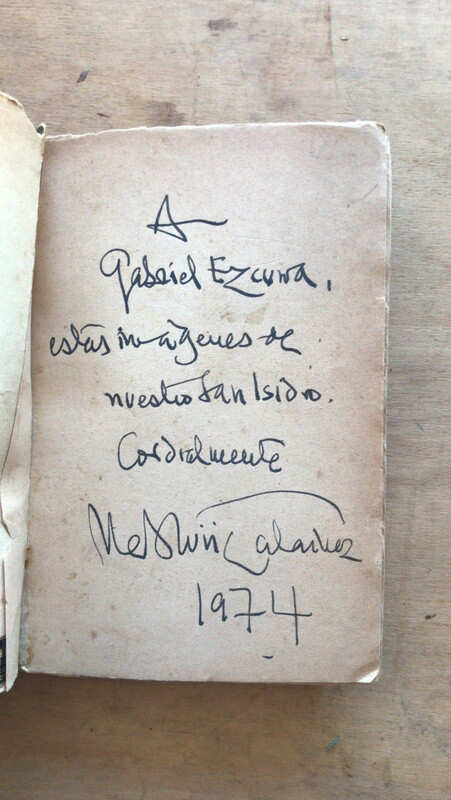 A
Gabriel Ezcurra,
estas imágenes de
nuestro San Isidro.
Cordialmente
1974